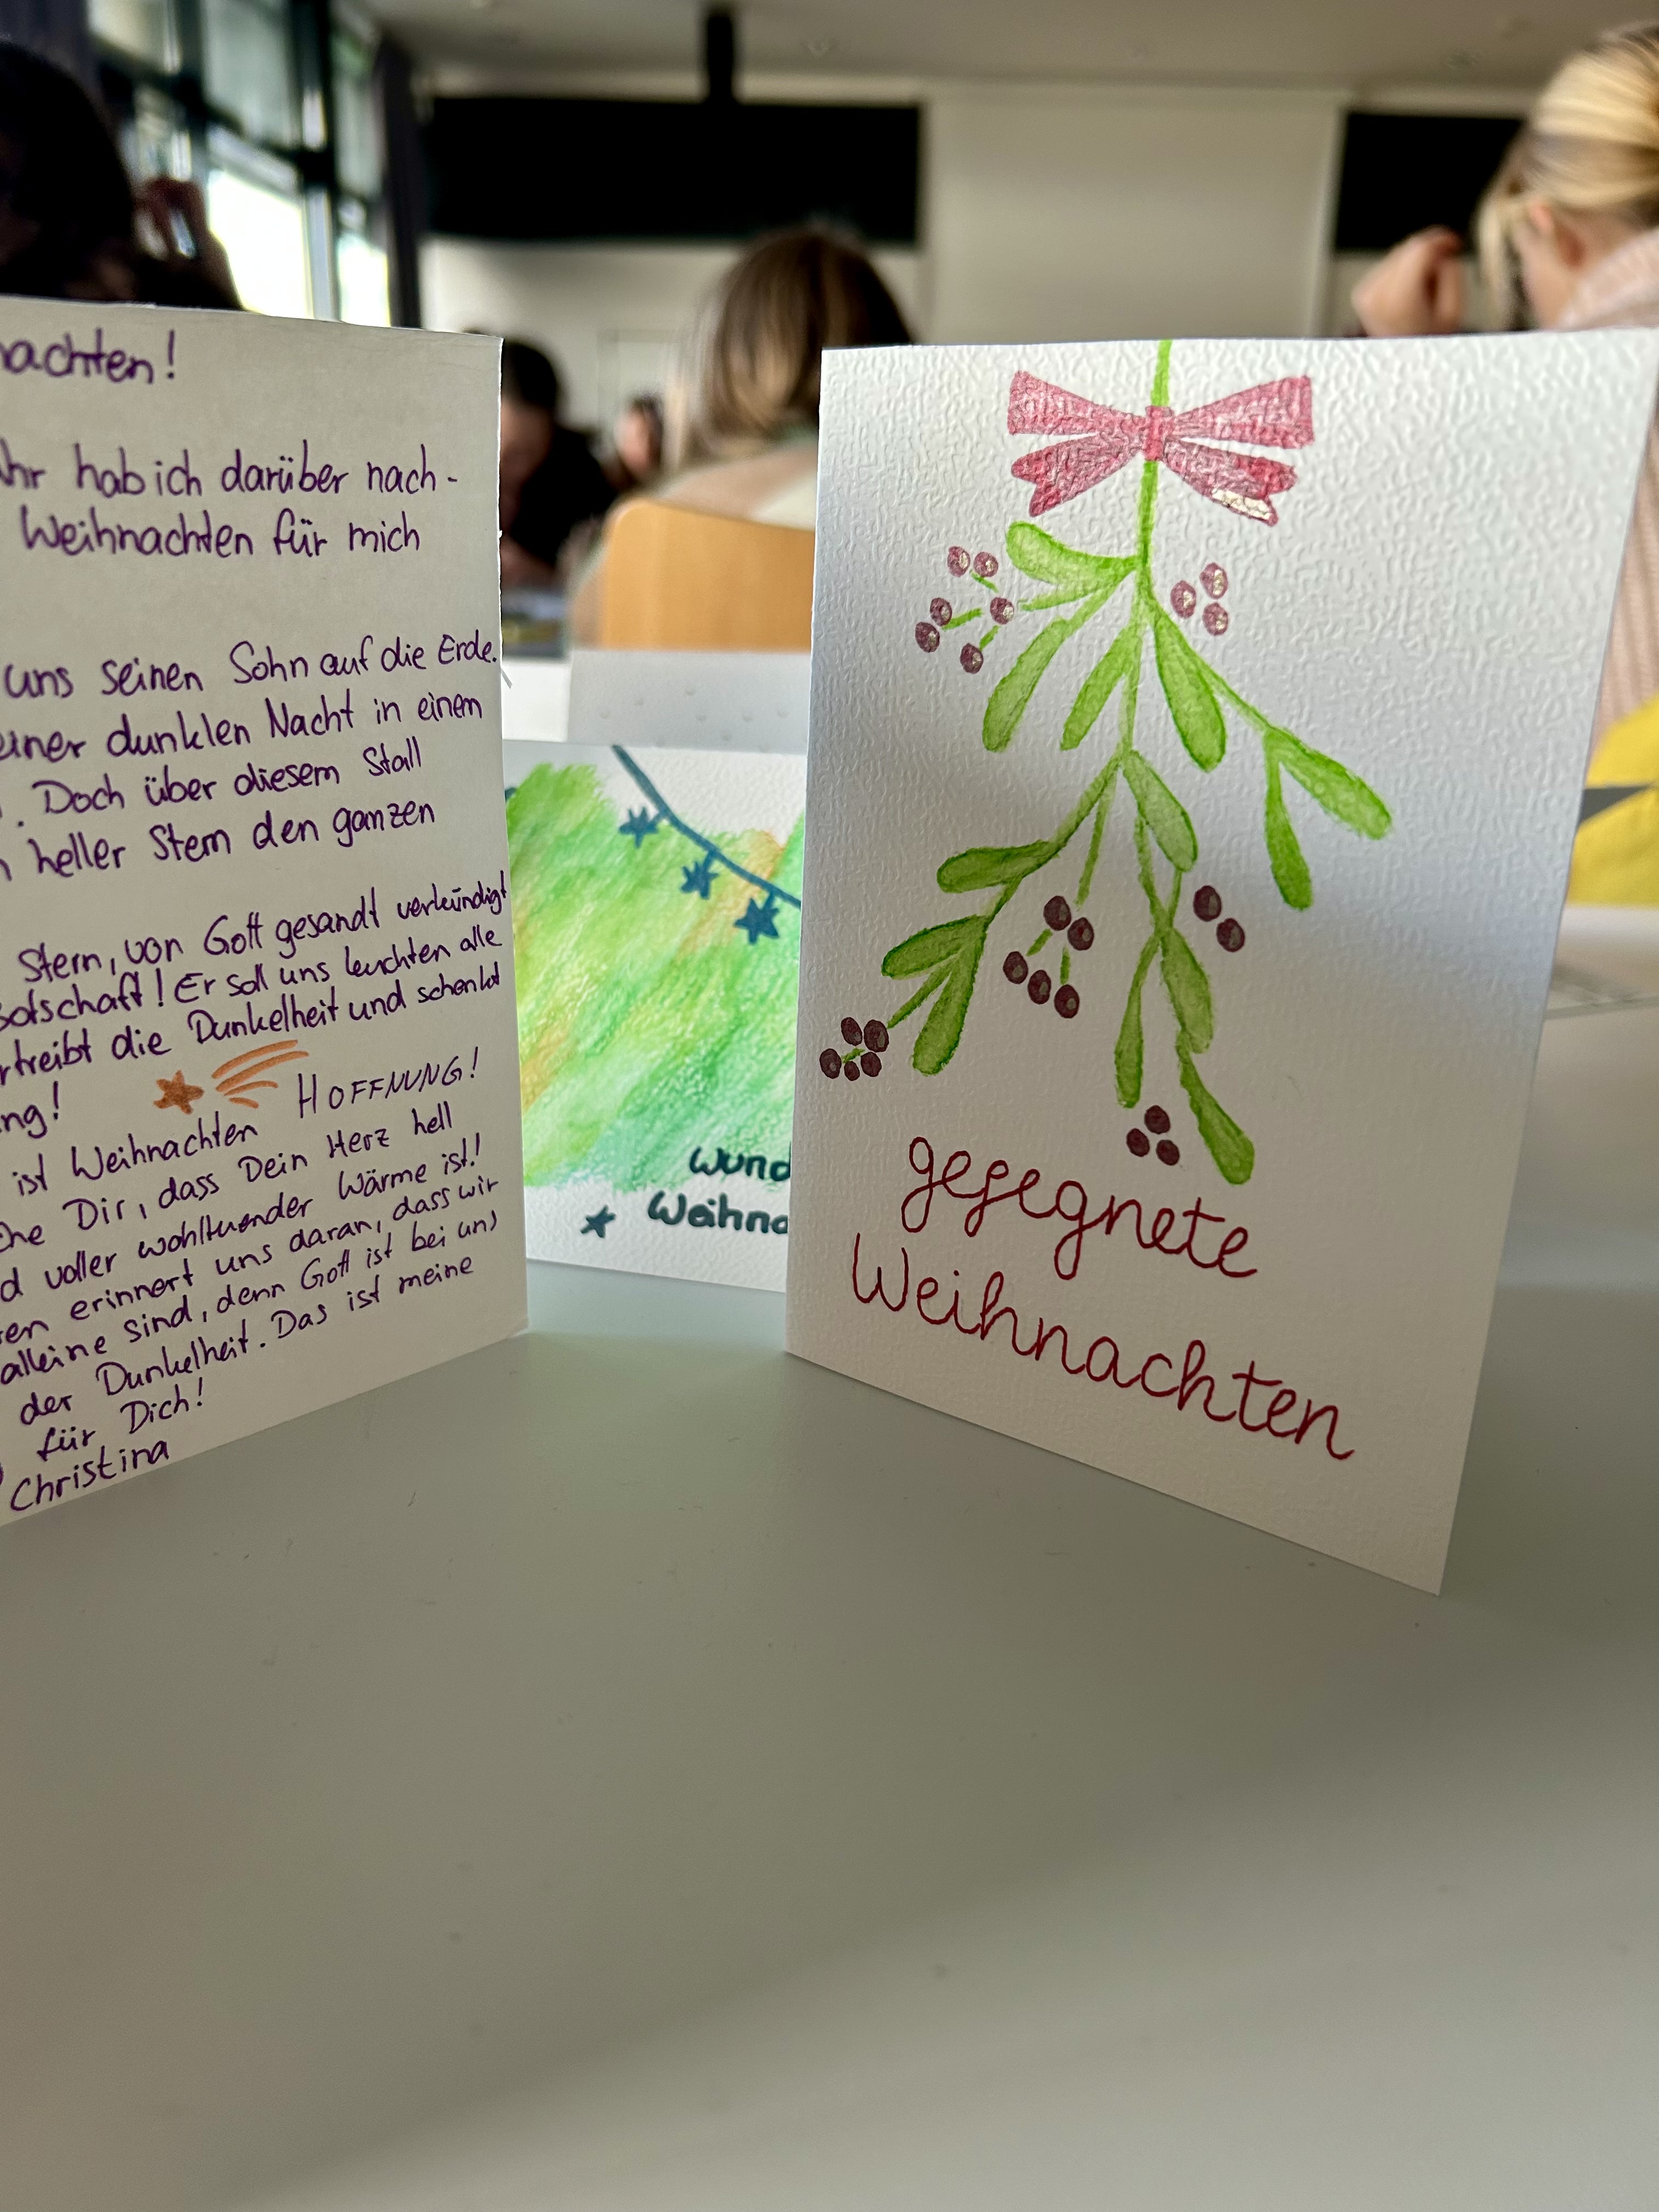 nachten!
Uhr hab ich darüber nach-
Weihnachten für mich
uns seinen Sohn auf die Erde.
einer dunklen Nacht in einem
. Doch über diesem Stall
n heller Stern den ganzen
Stern, von Gott gesandt verkündigt
Botschaft! Er soll uns leuchten alle
rtreibt die Dunkelheit und schenkt
ng!
ist Weihnachten HOFFNUNG!
che Dir, dass Dein Herz hell
d voller wohltuender Wärme ist!
en erinnert uns daran, dass wir
alleine sind, denn Gott ist bei uns
der Dunkelheit. Das ist meine
für Dich!
Christina
Wund
Weihna
gesegnete
Weihnachten